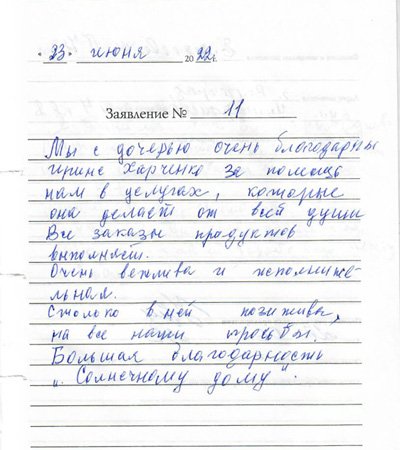 "23" июня 2022 г.
Заявление № 11
Мы с дочерью очень благодарны
Ирине Харченко за помощь
нам в услугах, которые
она делает от всей души
Все заказы продуктов
выполняет.
Очень вежлива и исполните-
льная.
Столько в ней позитива,
на все наши просьбы.
Большая благодарность
"Солнечному дому".